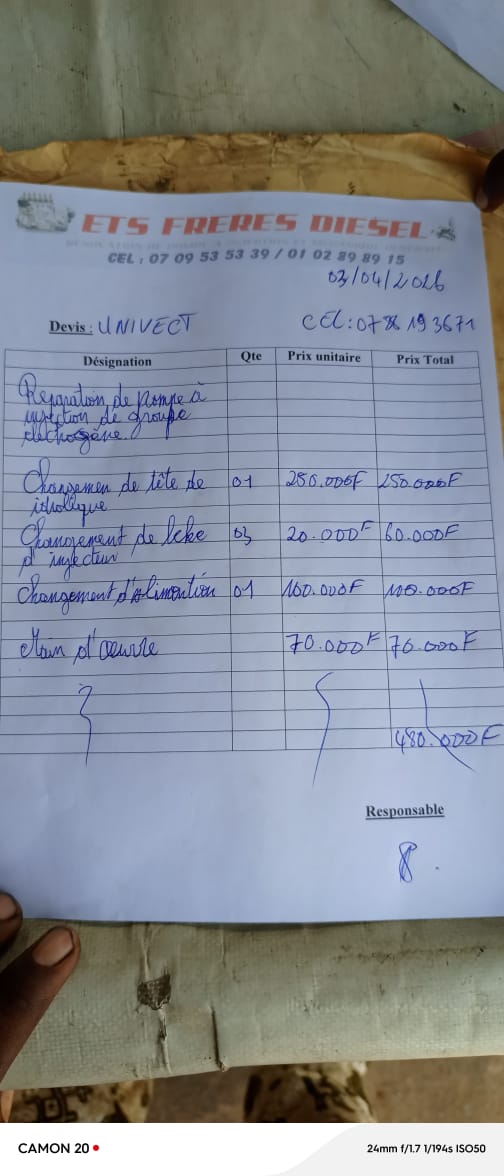 ETS FRERES DIESEL
CEL : 07 09 53 53 39 / 01 02 89 89 15
03/04/2026
Devis : UNIVECT
CEL: 07 193671
Désignation Qte Prix unitaire Prix Total
Reparation de Pompe à
injection de groupe
electrogène.
Changemen de tête de 01 250.000F 250.000F
itholique
Changement de 03 20.000F 60.000F
d'injecteur
Changement d'alimention 01 100.000F 100.000F
Main d'œuvre 70.000F 70.000F
480.000F
Responsable
CAMON 20
24mm f/1.7 1/194s ISO50